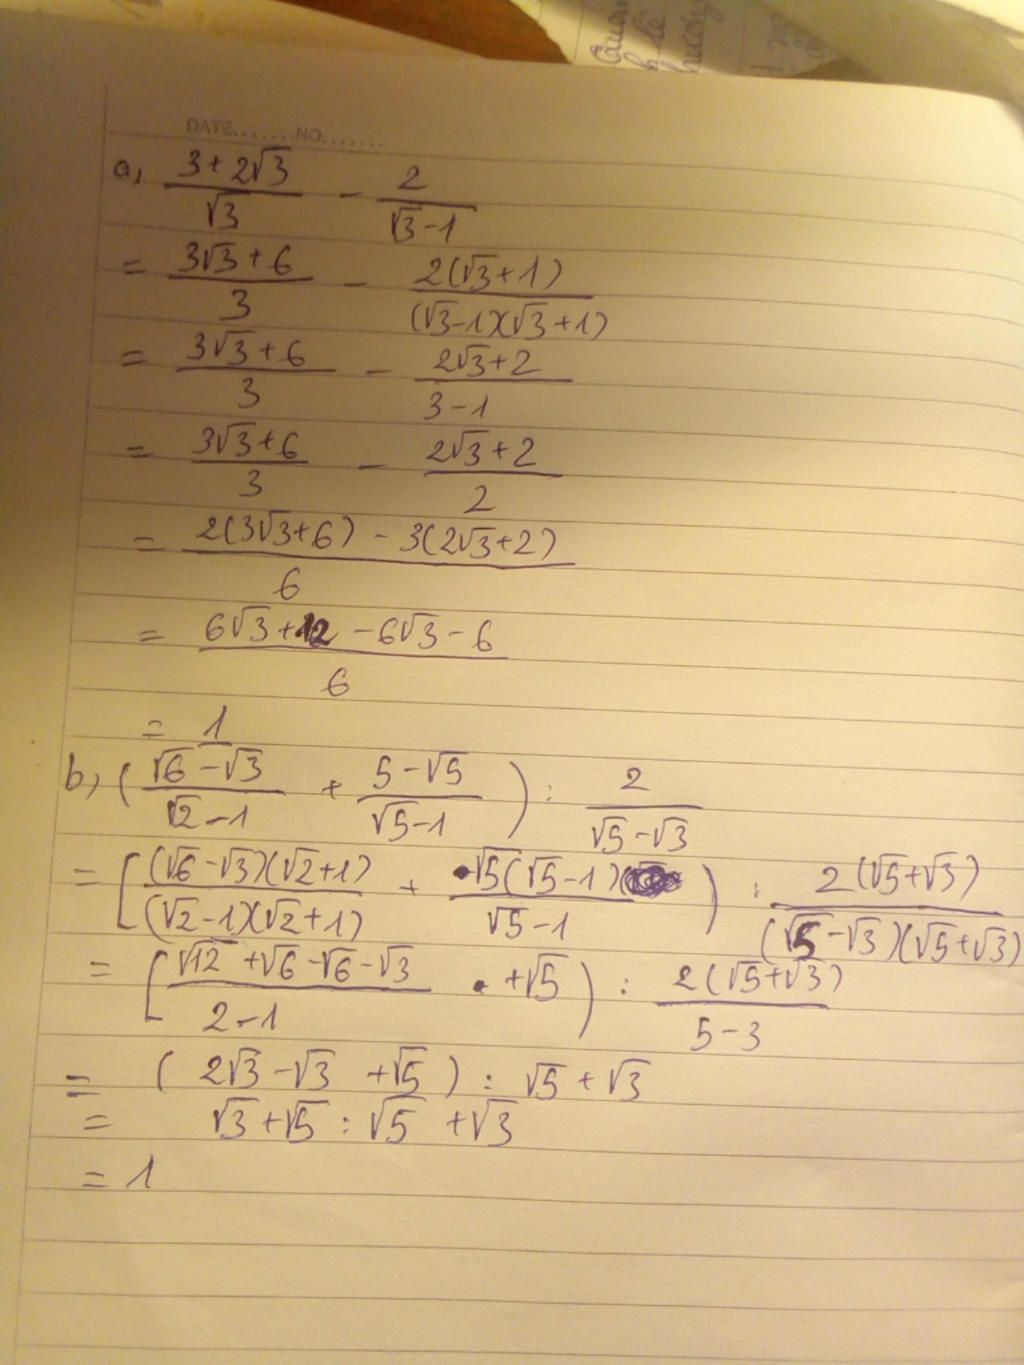 Quen
h lê
hướng
DATE.......NO.......
a, (3+2√3)/√3 - 2/(√3-1)
= (3√3+6)/3 - 2(√3+1)/((√3-1)(√3+1))
= (3√3+6)/3 - (2√3+2)/(3-1)
= (3√3+6)/3 - (2√3+2)/2
= (2(3√3+6) - 3(2√3+2))/6
= (6√3+12-6√3-6)/6
= 1
b, ((√6-√3)/(√2-1) + (5-√5)/(√5-1)) : 2/(√5-√3)
= [(√6-√3)(√2+1)/((√2-1)(√2+1)) + √5(√5-1)/(√5-1)) : 2(√5+√3)/((√5-√3)(√5+√3))
= [(√12+√6-√6-√3)/(2-1) +√5) : 2(√5+√3)/(5-3)
= (2√3-√3+√5) : √5+√3
= √3+√5 : √5+√3
= 1